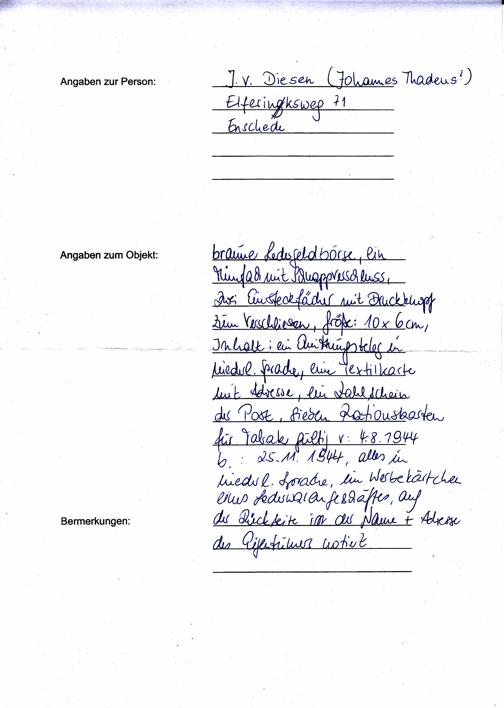 Angaben zur Person: J. v. Diesen (Johannes Thadeus?)
Elferinksweg 71
Enschede
Angaben zum Objekt: braune Ledergeldbörse, ein
Münzfach mit Schnappverschluss,
zwei Einsteckfächer mit Druckknopf
zum Verschliessen, Größe: 10 x 6 cm,
Inhalt: ein Quittungsbeleg in
niederl. Sprache, eine Textilkarte
mit Adresse, ein Zahlschein
der Post, sieben Rationskarten
für Tabak gültig v: 4.8.1944
b.: 25.11.1944, alles in
niederl. Sprache, ein Werbekärtchen
eines Lederwarengeschäftes, auf
Bermerkungen: der Rückseite ist der Name + Adresse
des Eigentümers notiert